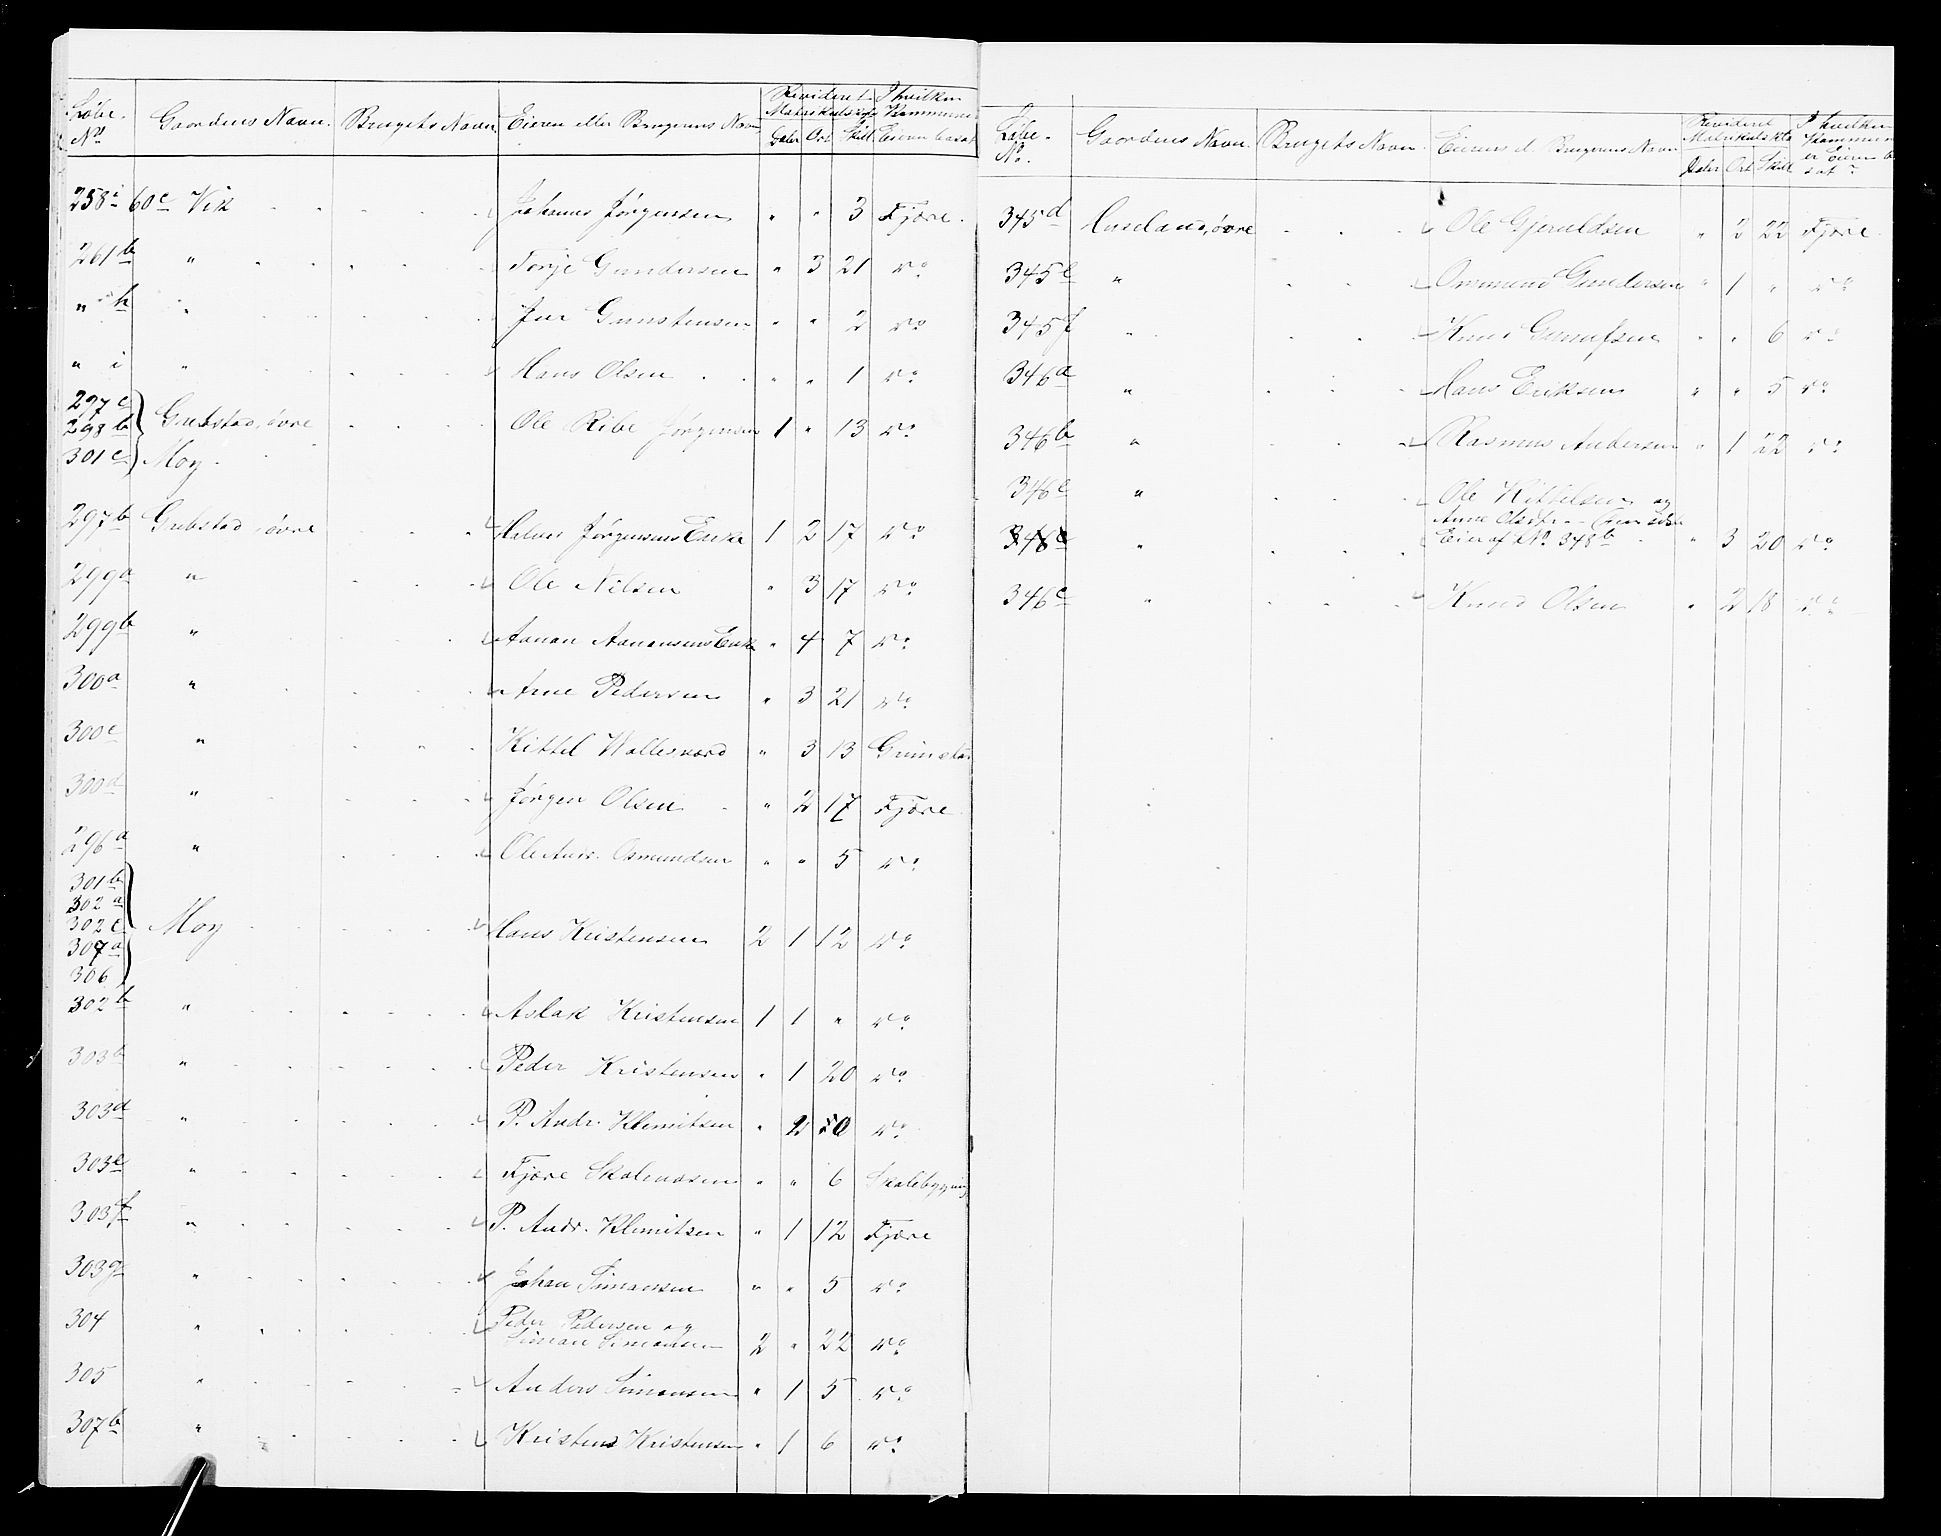 Løbe- No Gaardens Navn. Brugets Navn Eieren eller Brugerens Navn Revideret Matrikulskyld Daler Ort Skill I hvilken Kommune Eieren bosat
258i 60c Vik Johannes Jørgensen " " 3 Fjære.
261b " Terje Gundersen " 3 21 do
" h " Gunstensen " " 2 do
" i " Hans Olsen " " 1 do
297c
298b Grebstad, øvre Ole Ribe Jørgensen 1 " 13 do
301c Moy
297b Grebstad, øvre Halvor Jørgensens Enke 1 2 17 do
299a " Ole Nilsen " 3 17 do
299b " Aanon Aanonsens Enke " 4 7 do
300a " Arne Pedersen " 3 21 do
300c " Kittel Wallesværd " 3 13 Grimstad
300d " Jørgen Olsen " 2 17 Fjære
296a " Ole Andr. Osmundsen " " 5 do
301b
302a
302c Moy Hans Kristensen 2 1 12 do
307a
306
302b " Aslak Kristensen 1 1 " do
303b " Peder Kristensen " 1 20 do
303d " P. Andr. Klemitsen " 2 do
303e " " " 6
303f " P. Andr. Klemitsen " 1 12 Fjære
303g " Johan Simonsen " " 5 do
304 " Peder Pedersen og
Simon Simonsen 2 " 22 do
305 " Anders Simonsen " 1 5 do
307b " Kristen Kristensen " 1 6 do
Løbe- No. Gaardens Navn. Brugets Navn. Eierens el. Brugerens Navn Revideret Matrikulskld Daler Ort Skill I hvilken Kommune er Eieren bosat
345d øvre Ole Gjeruldsen " 2 22 Fjære.
345e " Osmund Gundersen " 1 " do
345f " Knud Gunufsen " " 6 do
346a " Hans Eriksen " " 5 do
346b " Rasmus Andersen " 1 22 do
346c " Ole Kittelsen og
Anne
348c " Eier af LNo 348b " 3 20 do
346e " Knud Olsen " 2 18 do